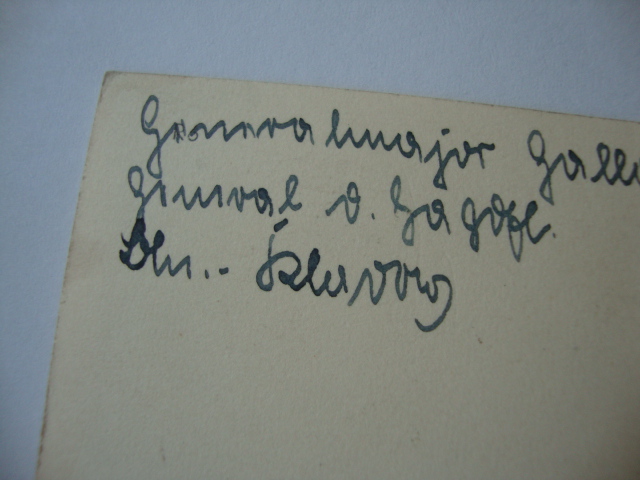 Generalmajor Galla
General d. Jagdfl.
Bln.- Kladow